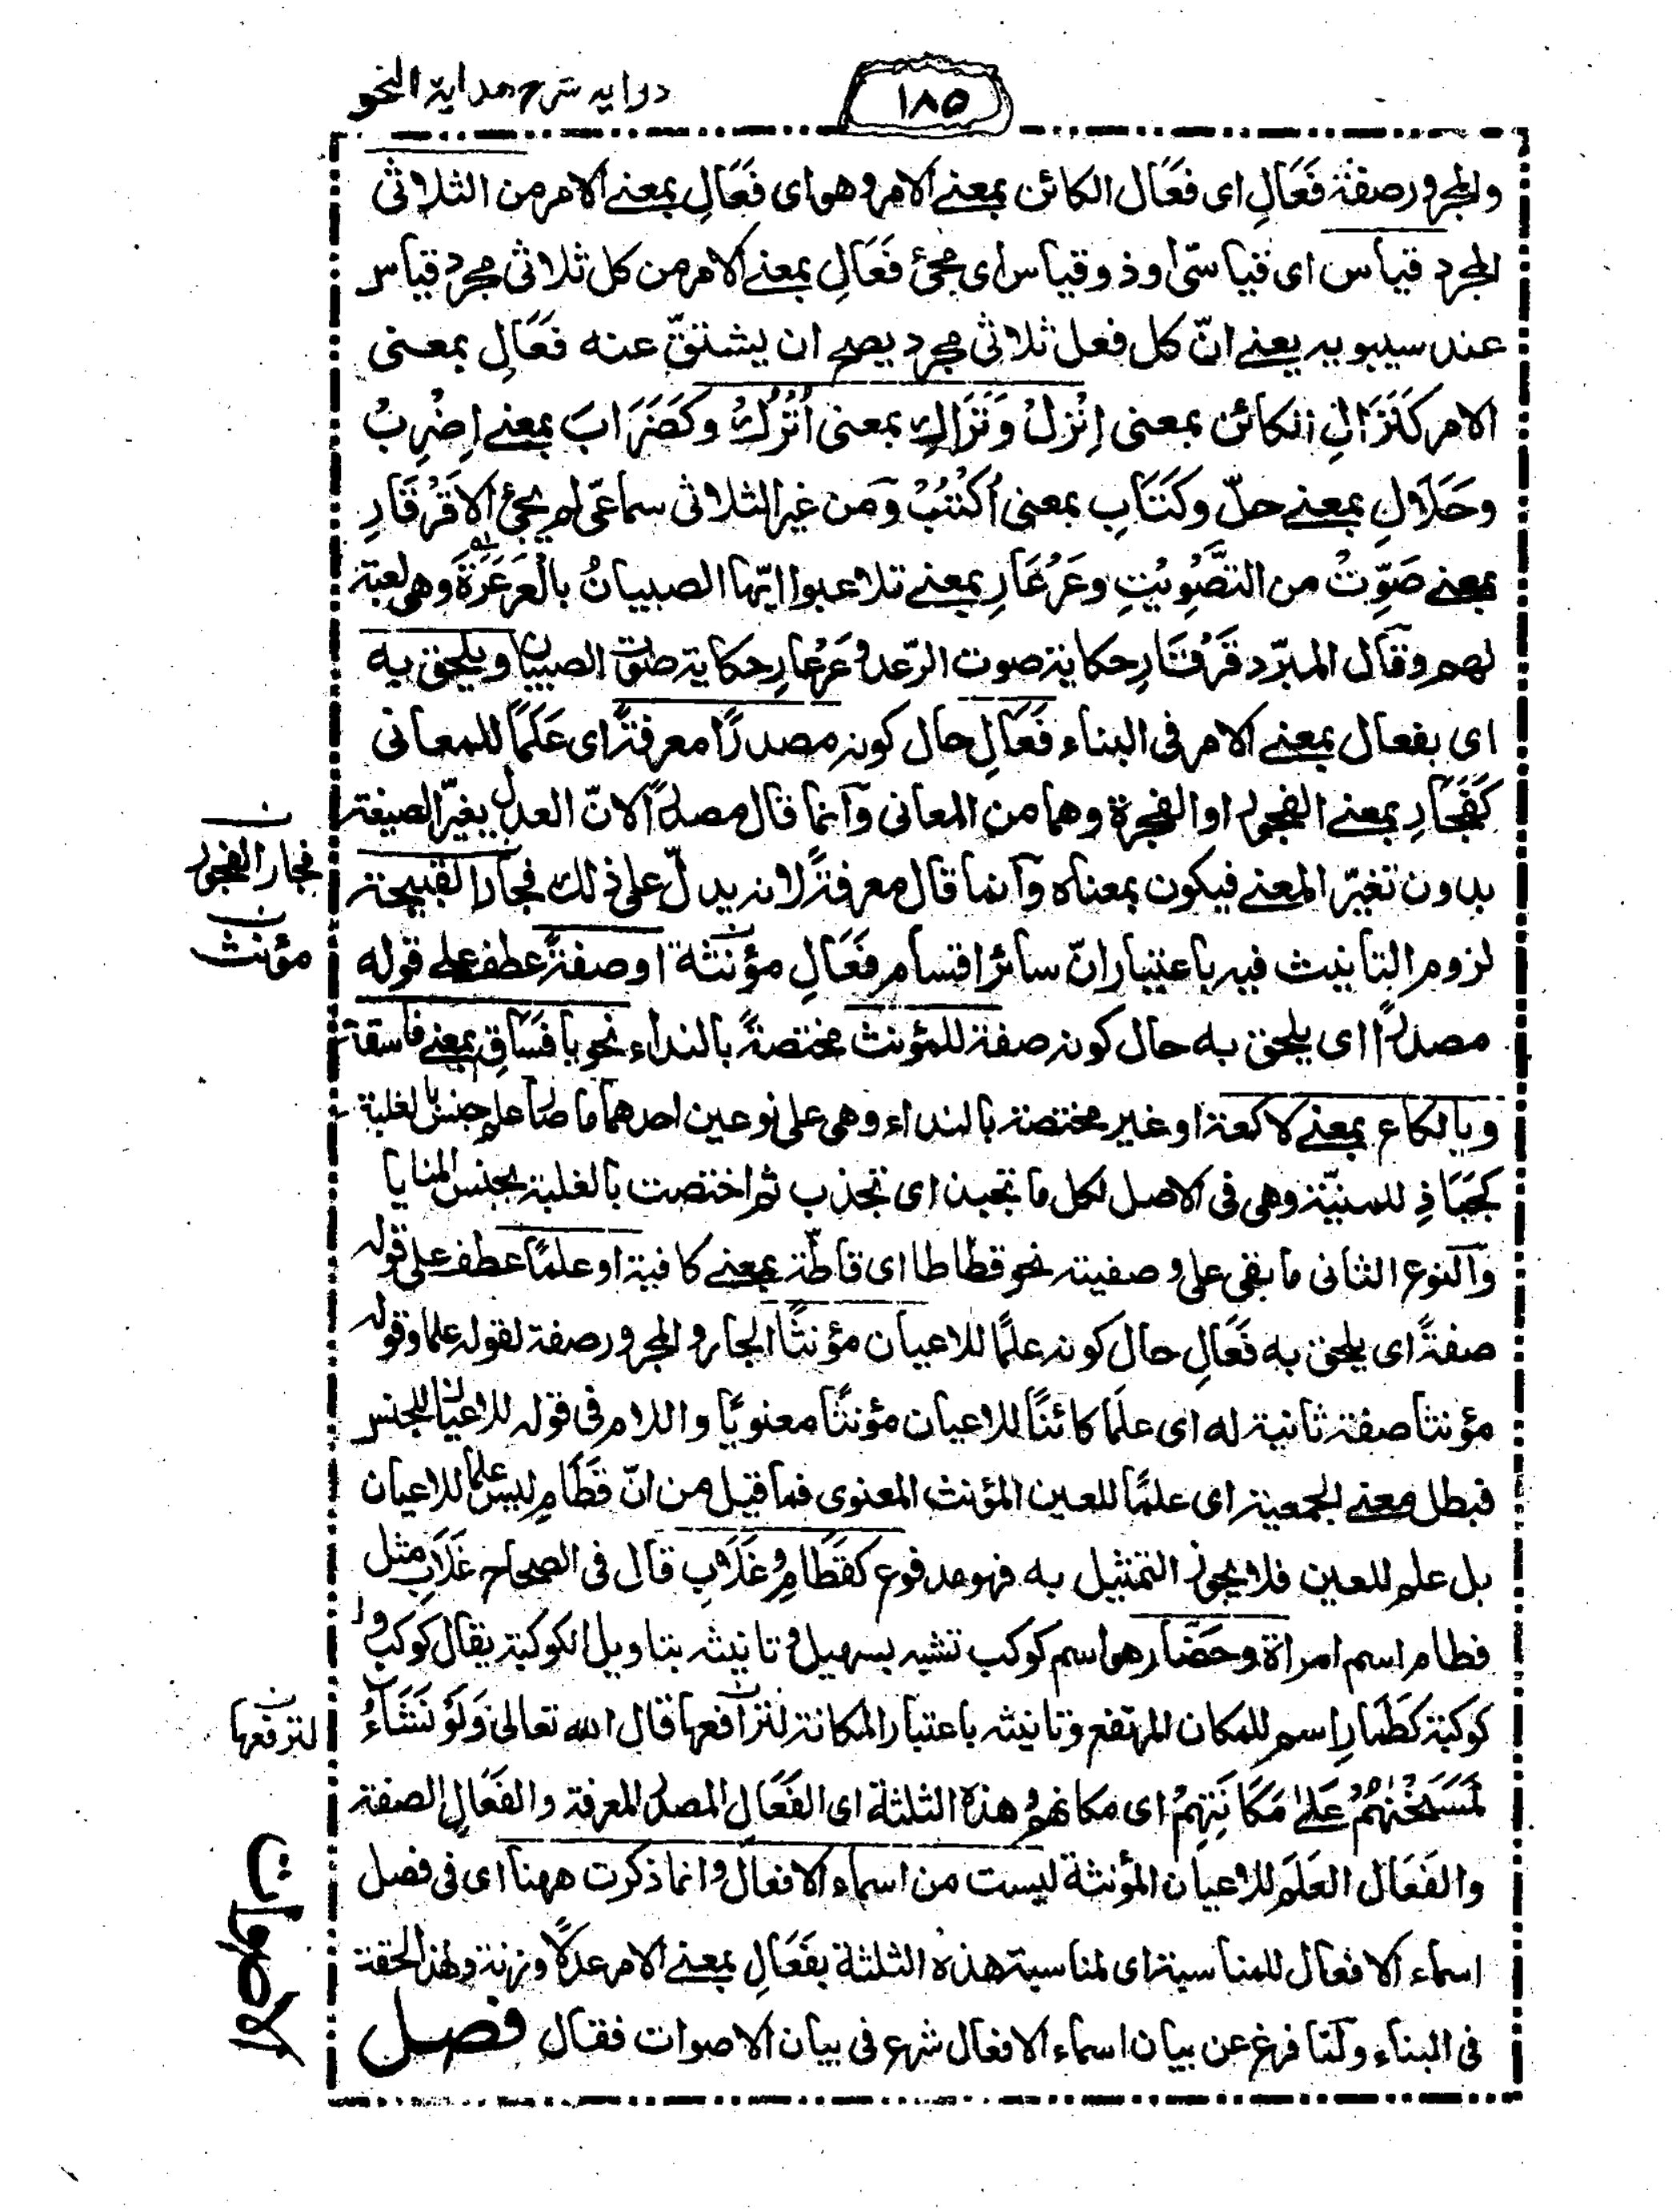 درايه شرح هداية النحو
١٨٥
والمجرور صفة فَعَالِ اى فعَال الكائن بمعنے الامر وهو اى فَعَالِ بمعنے الامر من الثلاثى
المجرد قياس اى قياسىّ او ذو قياس اى مجئ فَعَالِ بمعنے الامر من كل ثلاثى مجرد قياس
عند سيبويه يعنے انّ كل فعل ثلاثى مجرد يصح ان يشتقّ عنه فَعَالِ بمعنى
الامر كَنَزَالِ الكائن بمعنى اِنْزِلْ وَتَرَاكِ بمعنى اُتْرُكْ وكَضَرَابَ بمعنے اِضْرِبْ
وحَلَالِ بمعنے حلّ وكَتَابِ بمعنى اُكْتُبْ ومن غير الثلاثى سماعىّ لم يجئ الا قَرْقَارِ
بمعنے صَوِّتْ من التَّصْوِيْتِ وعَرْعَارِ بمعنے تلاعبوا ايّها الصبيانُ بالعَرْعَرَةِ وهى لعبة
لهم وقال المبرّد قَرْقَارِ حكاية صوت الرّعد وعَرْعارِ حكاية صوت الصبيان ويلحق به
اى بفعال بمعنے الامر فى البناء فَعَالِ حال كونه مصدرًا معرفةً اى عَلَمًا للمعانى
كَفَجَارِ بمعنے الفجور او الفجرة وهما من المعانى وانما قال مصدرًا لانّ العدل يغيّر الصيغة
بدون تغيّر المعنے فيكون بمعناه وانما قال معرفةً لانه يدلّ على ذلك فجار القبيحة
لزوم التانيث فيه باعتبار انّ سائر اقسام فَعَالِ مؤنثة او صفةً عطف على قوله
مصدرًا اى يلحق به حال كونه صفة للمؤنث مختصةً بالنداء نحو يا فَسَاقِ بمعنے فاسقة
ويا لكاع بمعنے لاكعة او غير مختصة بالنداء وهى على نوعين احدهما ما صار علم جنس بالغلبة
كجَبَاذِ للمنيّة وهى فى الاصل لكل ما تجبذ اى تجذب ثم اختصت بالغلبة بجنس المنايا
والنوع الثانى ما بقى على وصفيته نحو قطاطا اى قاطّة بمعنے كافية او علمًا عطف على قوله
صفةً اى يلحق به فَعَالِ حال كونه علمًا للاعيان مؤنثًا الجار والمجرور صفة لقوله علما وقوله
مؤنثا صفة ثانية له اى علمًا كائنًا للاعيان مؤنثًا معنويًا واللام فى قوله للاعيان للجنس
فبطل معنے الجمعية اى علمًا للعين المؤنث المعنوى فما قيل من انّ قَطَامِ ليس علما للاعيان
بل علم للعين فلا يجوز التمثيل به فهو مدفوع كقَطَامِ وغَلَابِ قال فى الصحاح غَلَابِ مثل
قطام اسم امراة وحَضَارِ هو اسم كوكب تشبه بسهيل وتانيثه بتاويل الكوكبة يقال كوكب و
كوكبة كطَمَارِ اسم للمكان المرتفع وتانيثه باعتبار المكانة لترافعها قال الله تعالى وَلَوْ نَشَاءُ
لَمَسَخْنٰهُمْ عَلىٰ مَكَانَتِهِمْ اى مكانهم وهذه الثلثة اى الفَعَال المصدر المعرفة والفَعَال الصفة
والفَعَال العَلَم للاعيان المؤنثة ليست من اسماء الافعال وانما ذكرت ههنا اى فى فصل
اسماء الافعال للمناسبة اى لمناسبة هذه الثلثة بفَعَالِ بمعنے الامر عدلًا وزنة ولهذا لحقة
فى البناء ولمّا فرغ عن بيان اسماء الافعال شرع فى بيان الاصوات فقال فصل
ن
فجار الفجور
ن
مؤنث
ن
لترفعها
الاصوات